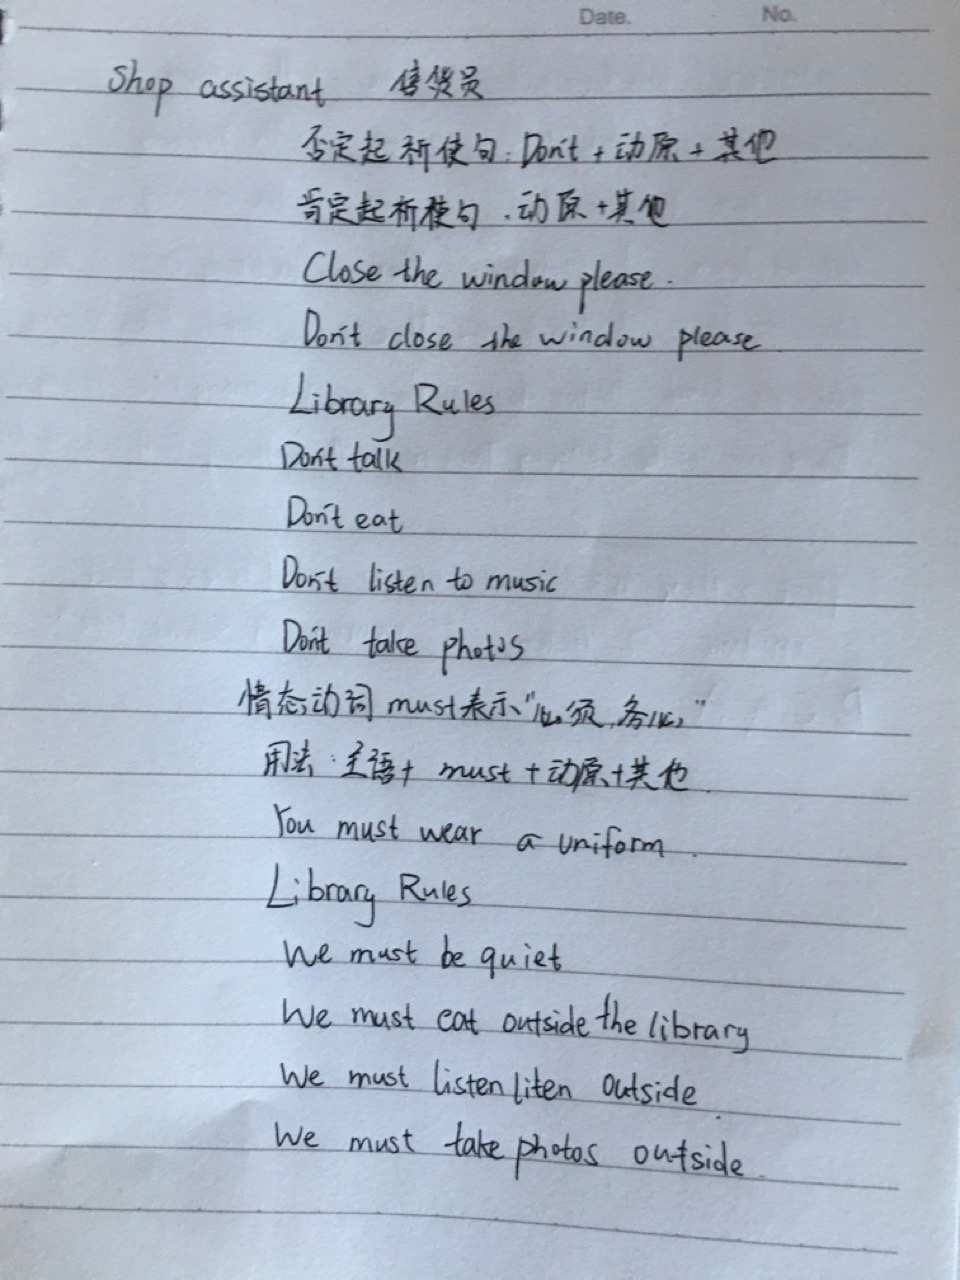 Date. No.
Shop assistant 售货员
否定起祈使句：Don't + 动原 + 其他
肯定起祈使句．动原 + 其他
Close the window please.
Don't close the window please.
Library Rules
Don't talk
Don't eat
Don't listen to music
Don't take photos
情态动词 must表示“必须，务必”
用法：主语 + must + 动原 + 其他.
You must wear a uniform.
Library Rules
We must be quiet
We must eat outside the library
We must listen liten outside.
We must take photos outside.